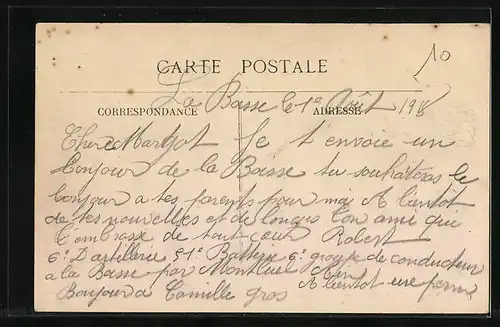 10
CARTE POSTALE
La Boisse le 1e Août 1918
CORRESPONDANCE ADRESSE
Chere Margot Je t'envoie un
bonjour de la Boisse tu souhateras le
bonjour a tes parents pour moi A bientot
de tes nouvelles et de longes Ton ami qui
t'embrasse de tout cœur Robert
6e D'artillerie 51e Batterie 6e groupe de conducteur
a la Boisse par Montluel Ain
A bientot une perm
Bonjour a Camille gros